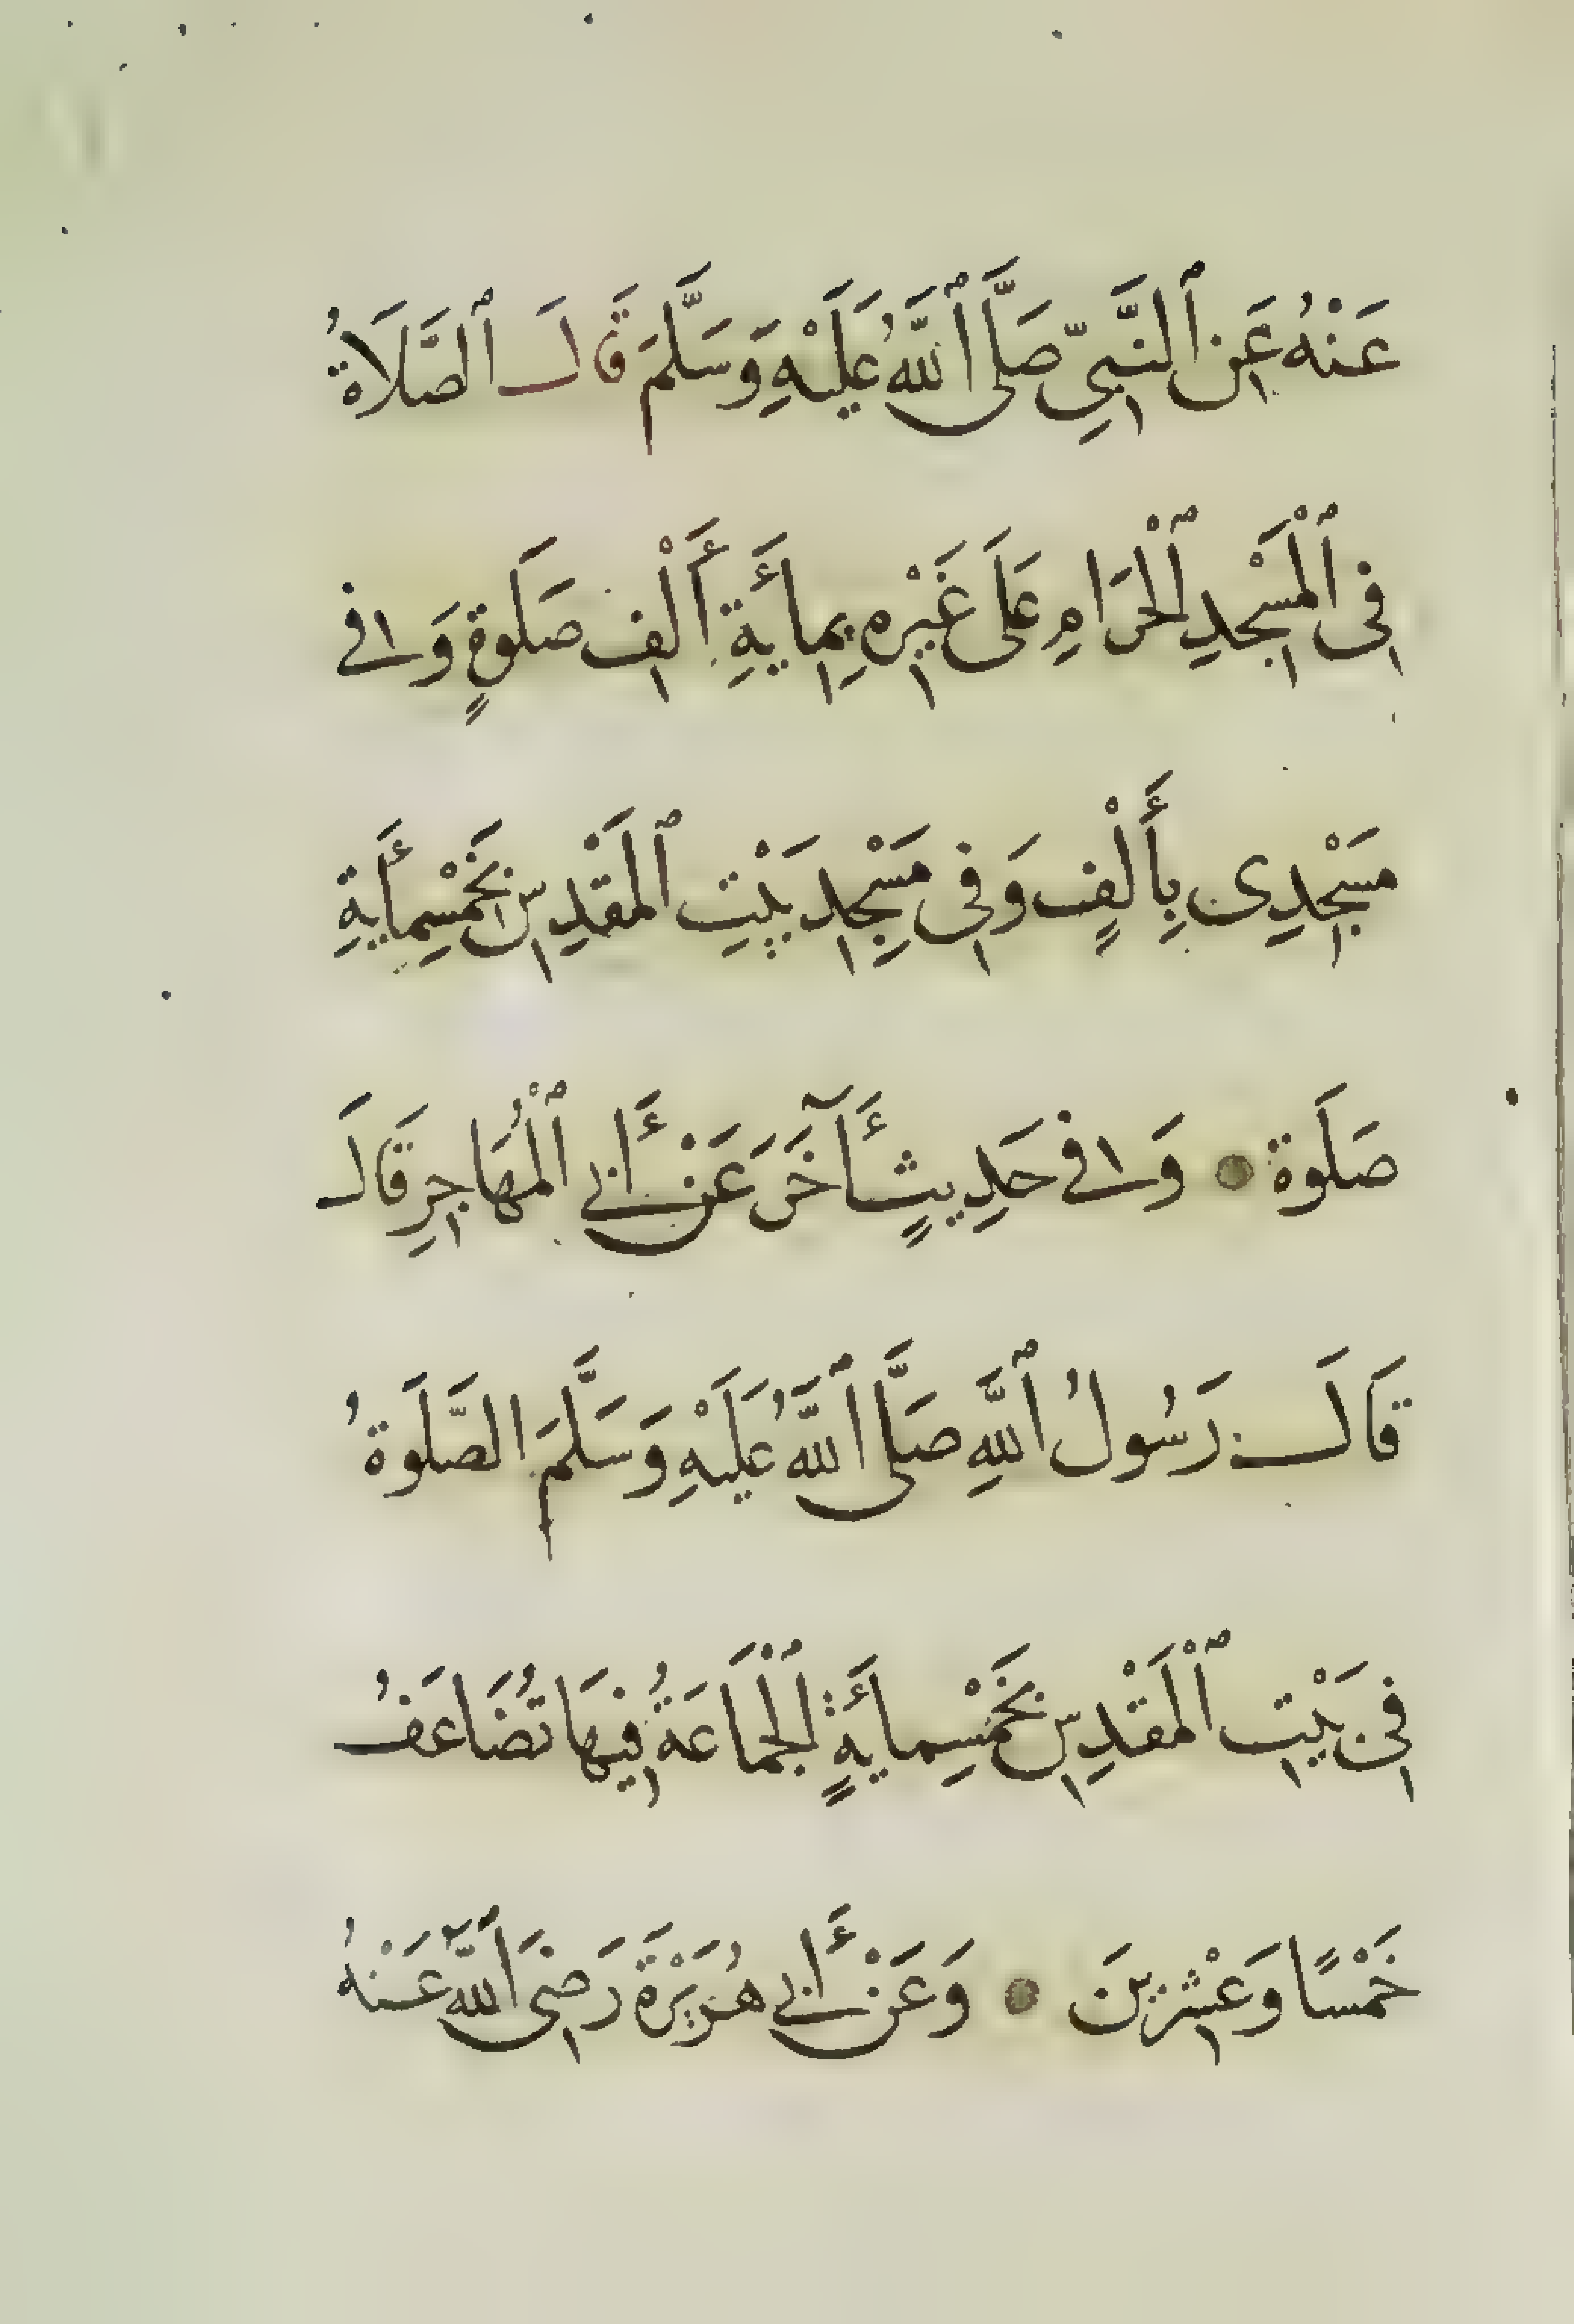 عَنْهُ عَنِ ٱلنَّبِيِّ صَلَّى ٱللَّهُ عَلَيْهِ وَسَلَّمَ قَالَ ٱلصَّلَاةُ
فِى ٱلْمَسْجِدِ ٱلْحَرَامِ عَلَى غَيْرِهِ بِمِائَةِ أَلْفِ صَلَوةٍ وَفِى
مَسْجِدِى بِأَلْفٍ وَفِى مَسْجِدِ بَيْتِ ٱلْمَقْدِسِ بِخَمْسِمِأَيَةِ
صَلَوة ● وَفِى حَدِيثٍ أَآخَرَ عَنْ أَبِى ٱلْمُهَاجِرِ قَالَ
قَالَ رَسُولُ ٱللَّهِ صَلَّى ٱللَّهُ عَلَيْهِ وَسَلَّمَ الصَّلَوةُ
فِى بَيْتِ ٱلْمَقْدِسِ بِخَمْسِمِايَةٍ ٱلْجَمَاعَةُ فِيهَا تُضَاعَفُ
خَمْسًا وَعِشْرِينَ ● وَعَنْ أَبِى هُرَيْرَةَ رَضِىَ ٱللَّهُ عَنْهُ